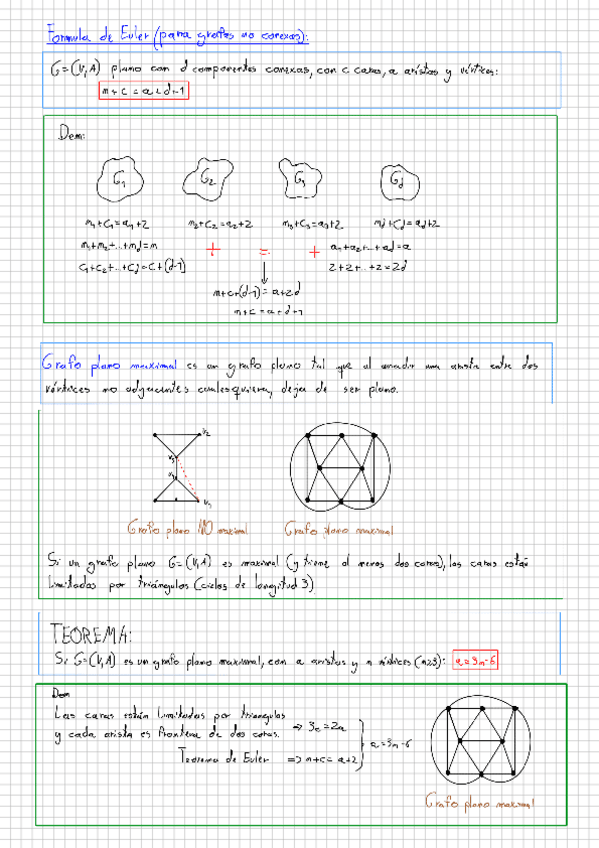 Formula de Euler (para grafos no conexos):
G=(V,A) plano con d componentes conexas, con c caras, a aristas y vértices:
n+c=a+d+1
Dem:
G₁ G₂ G₃ G_d
n₁+c₁=a₁+2 n₂+c₂=a₂+2 n₃+c₃=a₃+2 n_d+c_d=a_d+2
n₁+n₂+...+n_d=n + = + a₁+a₂+...+a_d=a
c₁+c₂+...+c_d=c+(d-1) 2+2+...+2=2d
n+c+(d-1)=a+2d
n+c=a+d+1
Grafo plano maximal es un grafo plano tal que al anadir una arista entre dos
vértices no adyacentes cualesquiera, deja de ser plano.
v₂
v₃
v₄
v₁
Grafo plano NO maximal Grafo plano maximal
Si un grafo plano G=(V,A) es maximal (y tiene al menos dos caras), las caras están
limitadas por triángulos (ciclos de longitud 3)
TEOREMA:
Si G=(V,A) es un grafo plano maximal, con a aristas y n vértices (n≥3): a=3n-6
Dem
Las caras están limitadas por triangulos
y cada arista es frontera de dos caras. ⇒ 3c=2a
a=3n-6
Teorema de Euler ⇒ n+c=a+2
Grafo plano maximal